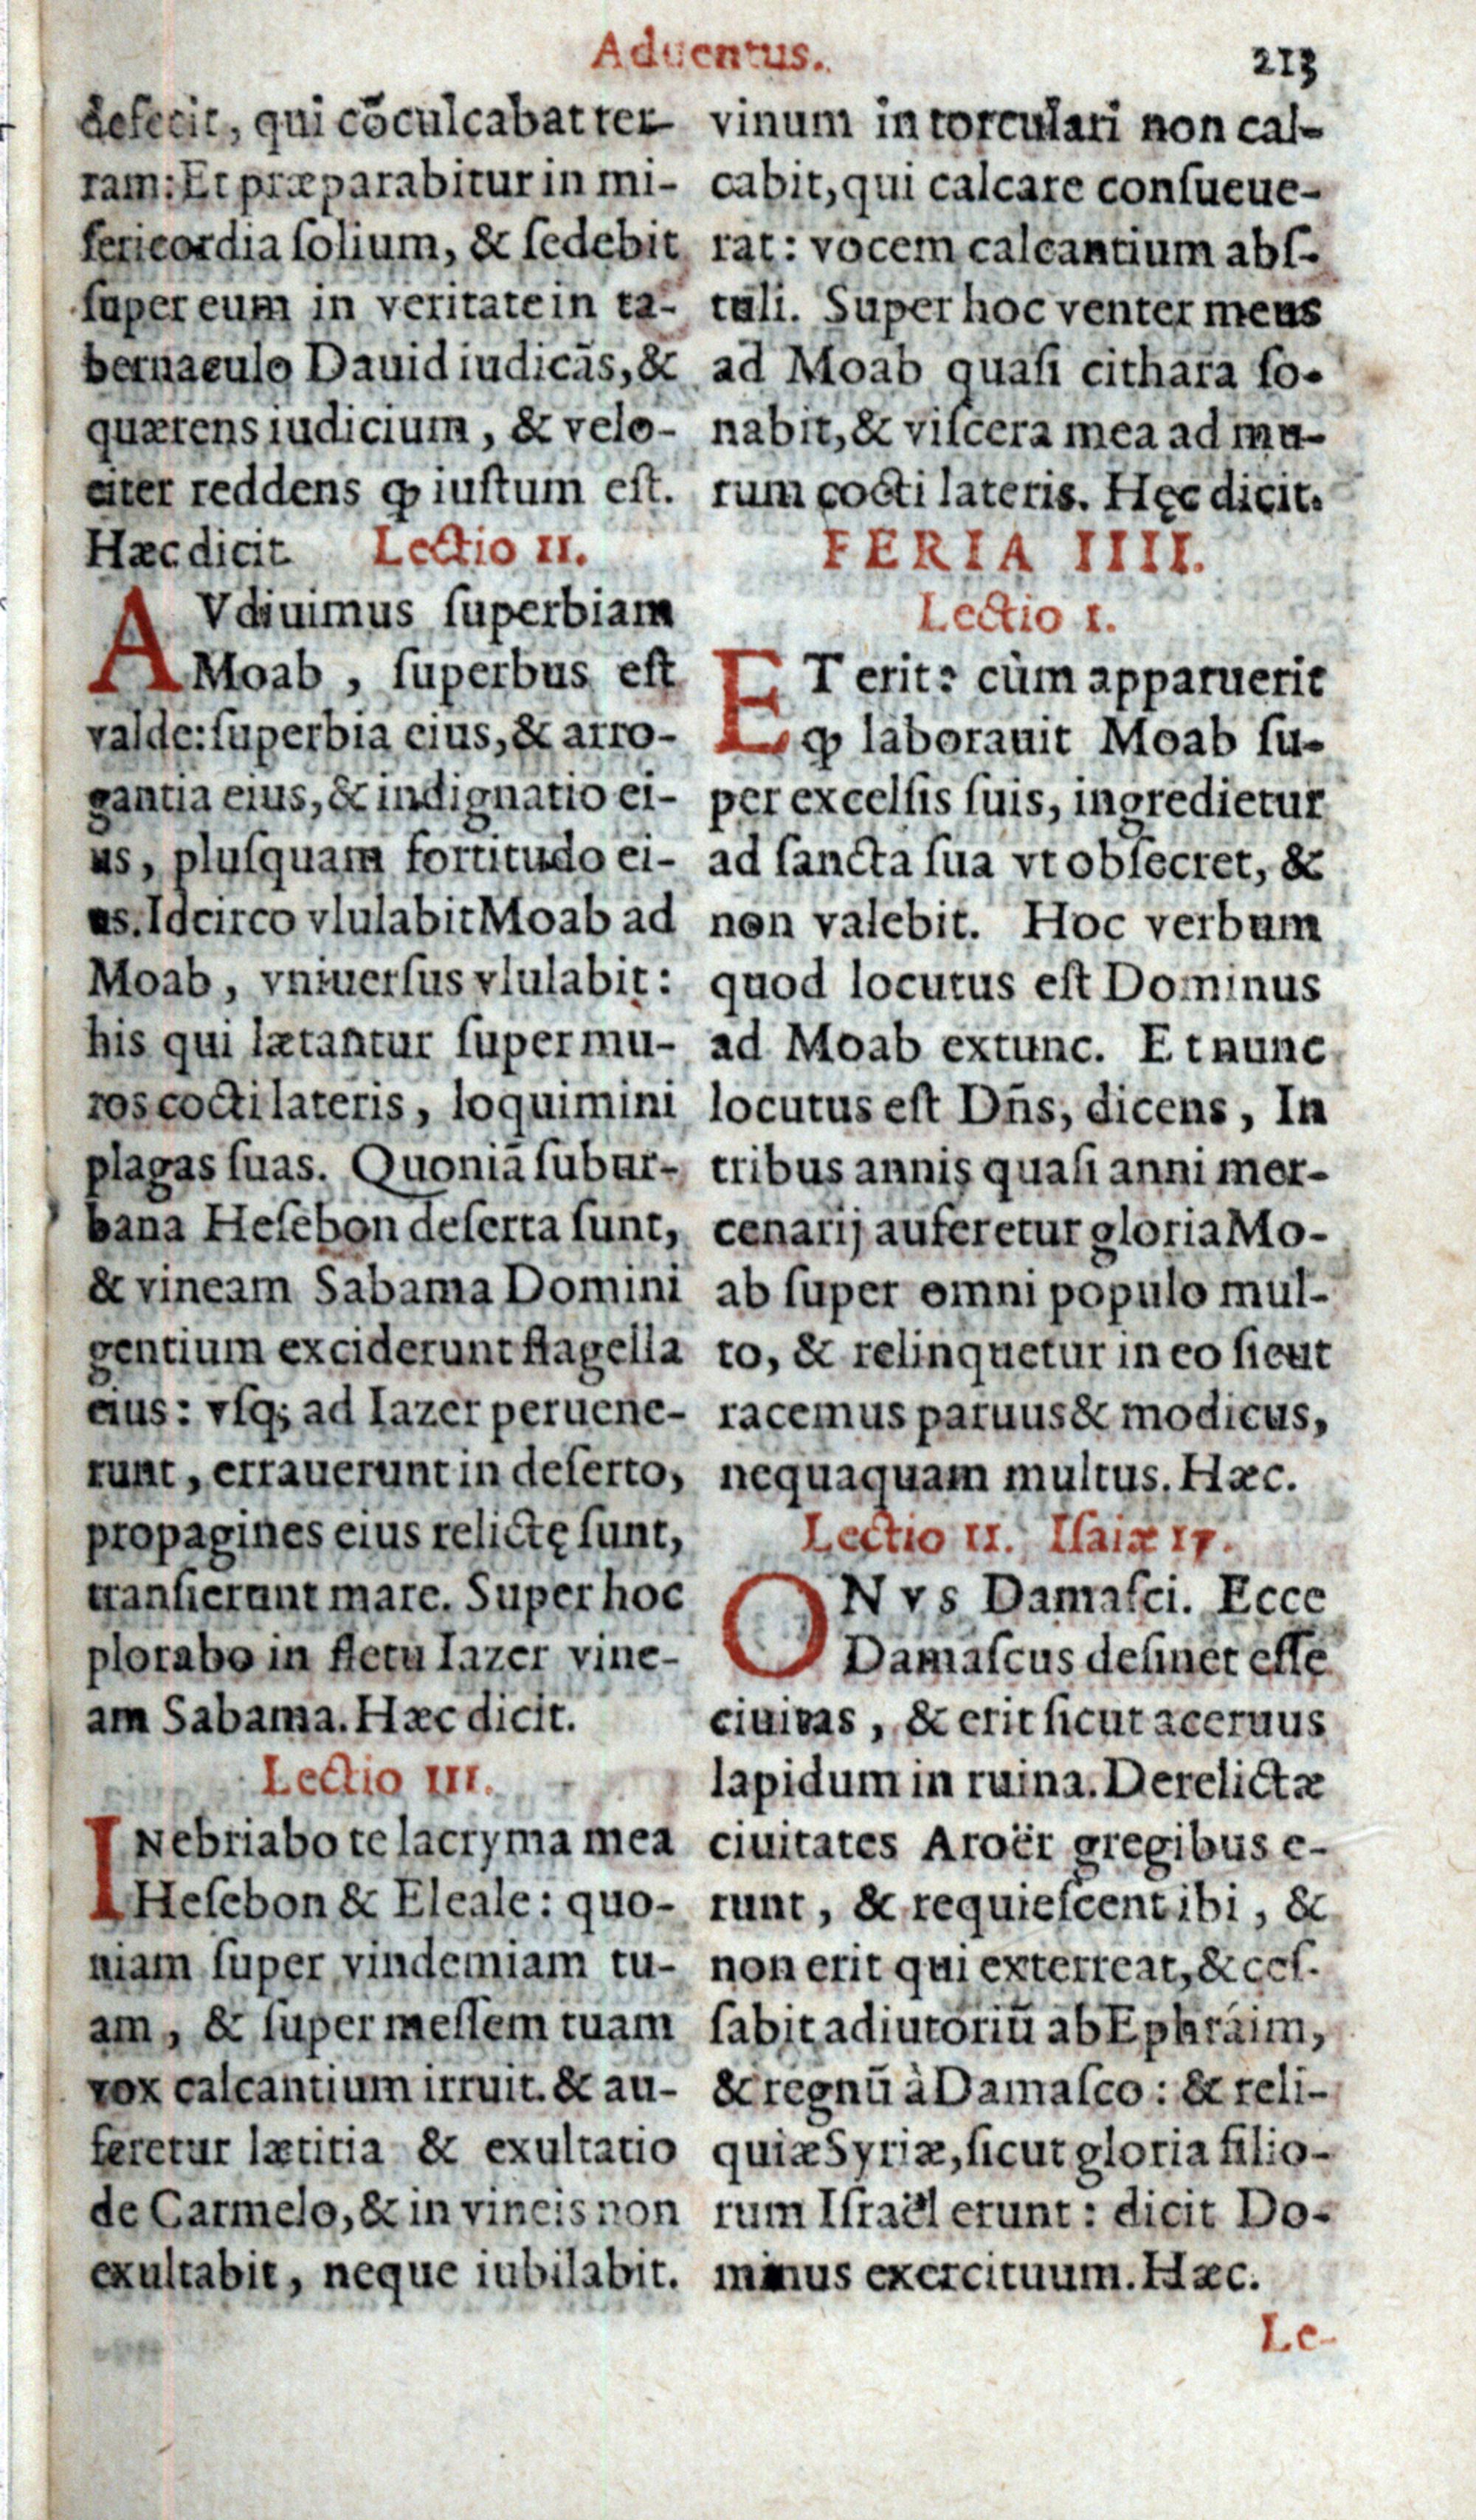 Aduentus.
213
defecit, qui cõculcabat ter-
ram: Et præparabitur in mi-
ſericordia ſolium, & ſedebit
ſuper eum in veritate in ta-
bernaculo Dauid iudicãs, &
quærens iudicium, & velo-
citer reddens ꝙ iuſtum eſt.
Hæc dicit. Lectio II.
AVdiuimus ſuperbiam
Moab, ſuperbus eſt
valde: ſuperbia eius, & arro-
gantia eius, & indignatio ei-
us, pluſquam fortitudo ei-
us. Idcirco vlulabit Moab ad
Moab, vniuerſus vlulabit:
his qui lætantur ſuper mu-
ros cocti lateris, loquimini
plagas ſuas. Quoniã ſubur-
bana Heſebon deſerta ſunt,
& vineam Sabama Domini
gentium exciderunt flagella
eius: vſq; ad Iazer peruene-
runt, errauerunt in deſerto,
propagines eius relictę ſunt,
tranſierunt mare. Super hoc
plorabo in fletu Iazer vine-
am Sabama. Hæc dicit.
Lectio III.
INebriabo te lacryma mea
Heſebon & Eleale: quo-
niam ſuper vindemiam tu-
am, & ſuper meſſem tuam
vox calcantium irruit. & au-
feretur lætitia & exultatio
de Carmelo, & in vineis non
exultabit, neque iubilabit.
vinum in torculari non cal-
cabit, qui calcare conſueue-
rat: vocem calcantium abſ-
tuli. Super hoc venter meus
ad Moab quaſi cithara ſo-
nabit, & viſcera mea ad mu-
rum cocti lateris. Hęc dicit.
FERIA IIII.
Lectio I.
ET erit: cùm apparuerit
ꝙ laborauit Moab ſu-
per excelſis ſuis, ingredietur
ad ſancta ſua vt obſecret, &
non valebit. Hoc verbum
quod locutus eſt Dominus
ad Moab extunc. Et nunc
locutus eſt Dñs, dicens, In
tribus annis quaſi anni mer-
cenarij auferetur gloria Mo-
ab ſuper omni populo mul-
to, & relinquetur in eo ſicut
racemus paruus & modicus,
nequaquam multus. Hæc.
Lectio II. Iſaiæ 17.
ONVS Damaſci. Ecce
Damaſcus deſinet eſſe
ciuitas, & erit ſicut aceruus
lapidum in ruina. Derelictæ
ciuitates Aroër gregibus e-
runt, & requieſcent ibi, &
non erit qui exterreat, & ceſ-
ſabit adiutoriũ ab Ephráim,
& regnũ à Damaſco: & reli-
quiæ Syriæ, ſicut gloria filio-
rum Iſraël erunt: dicit Do-
minus exercituum. Hæc.
Le-